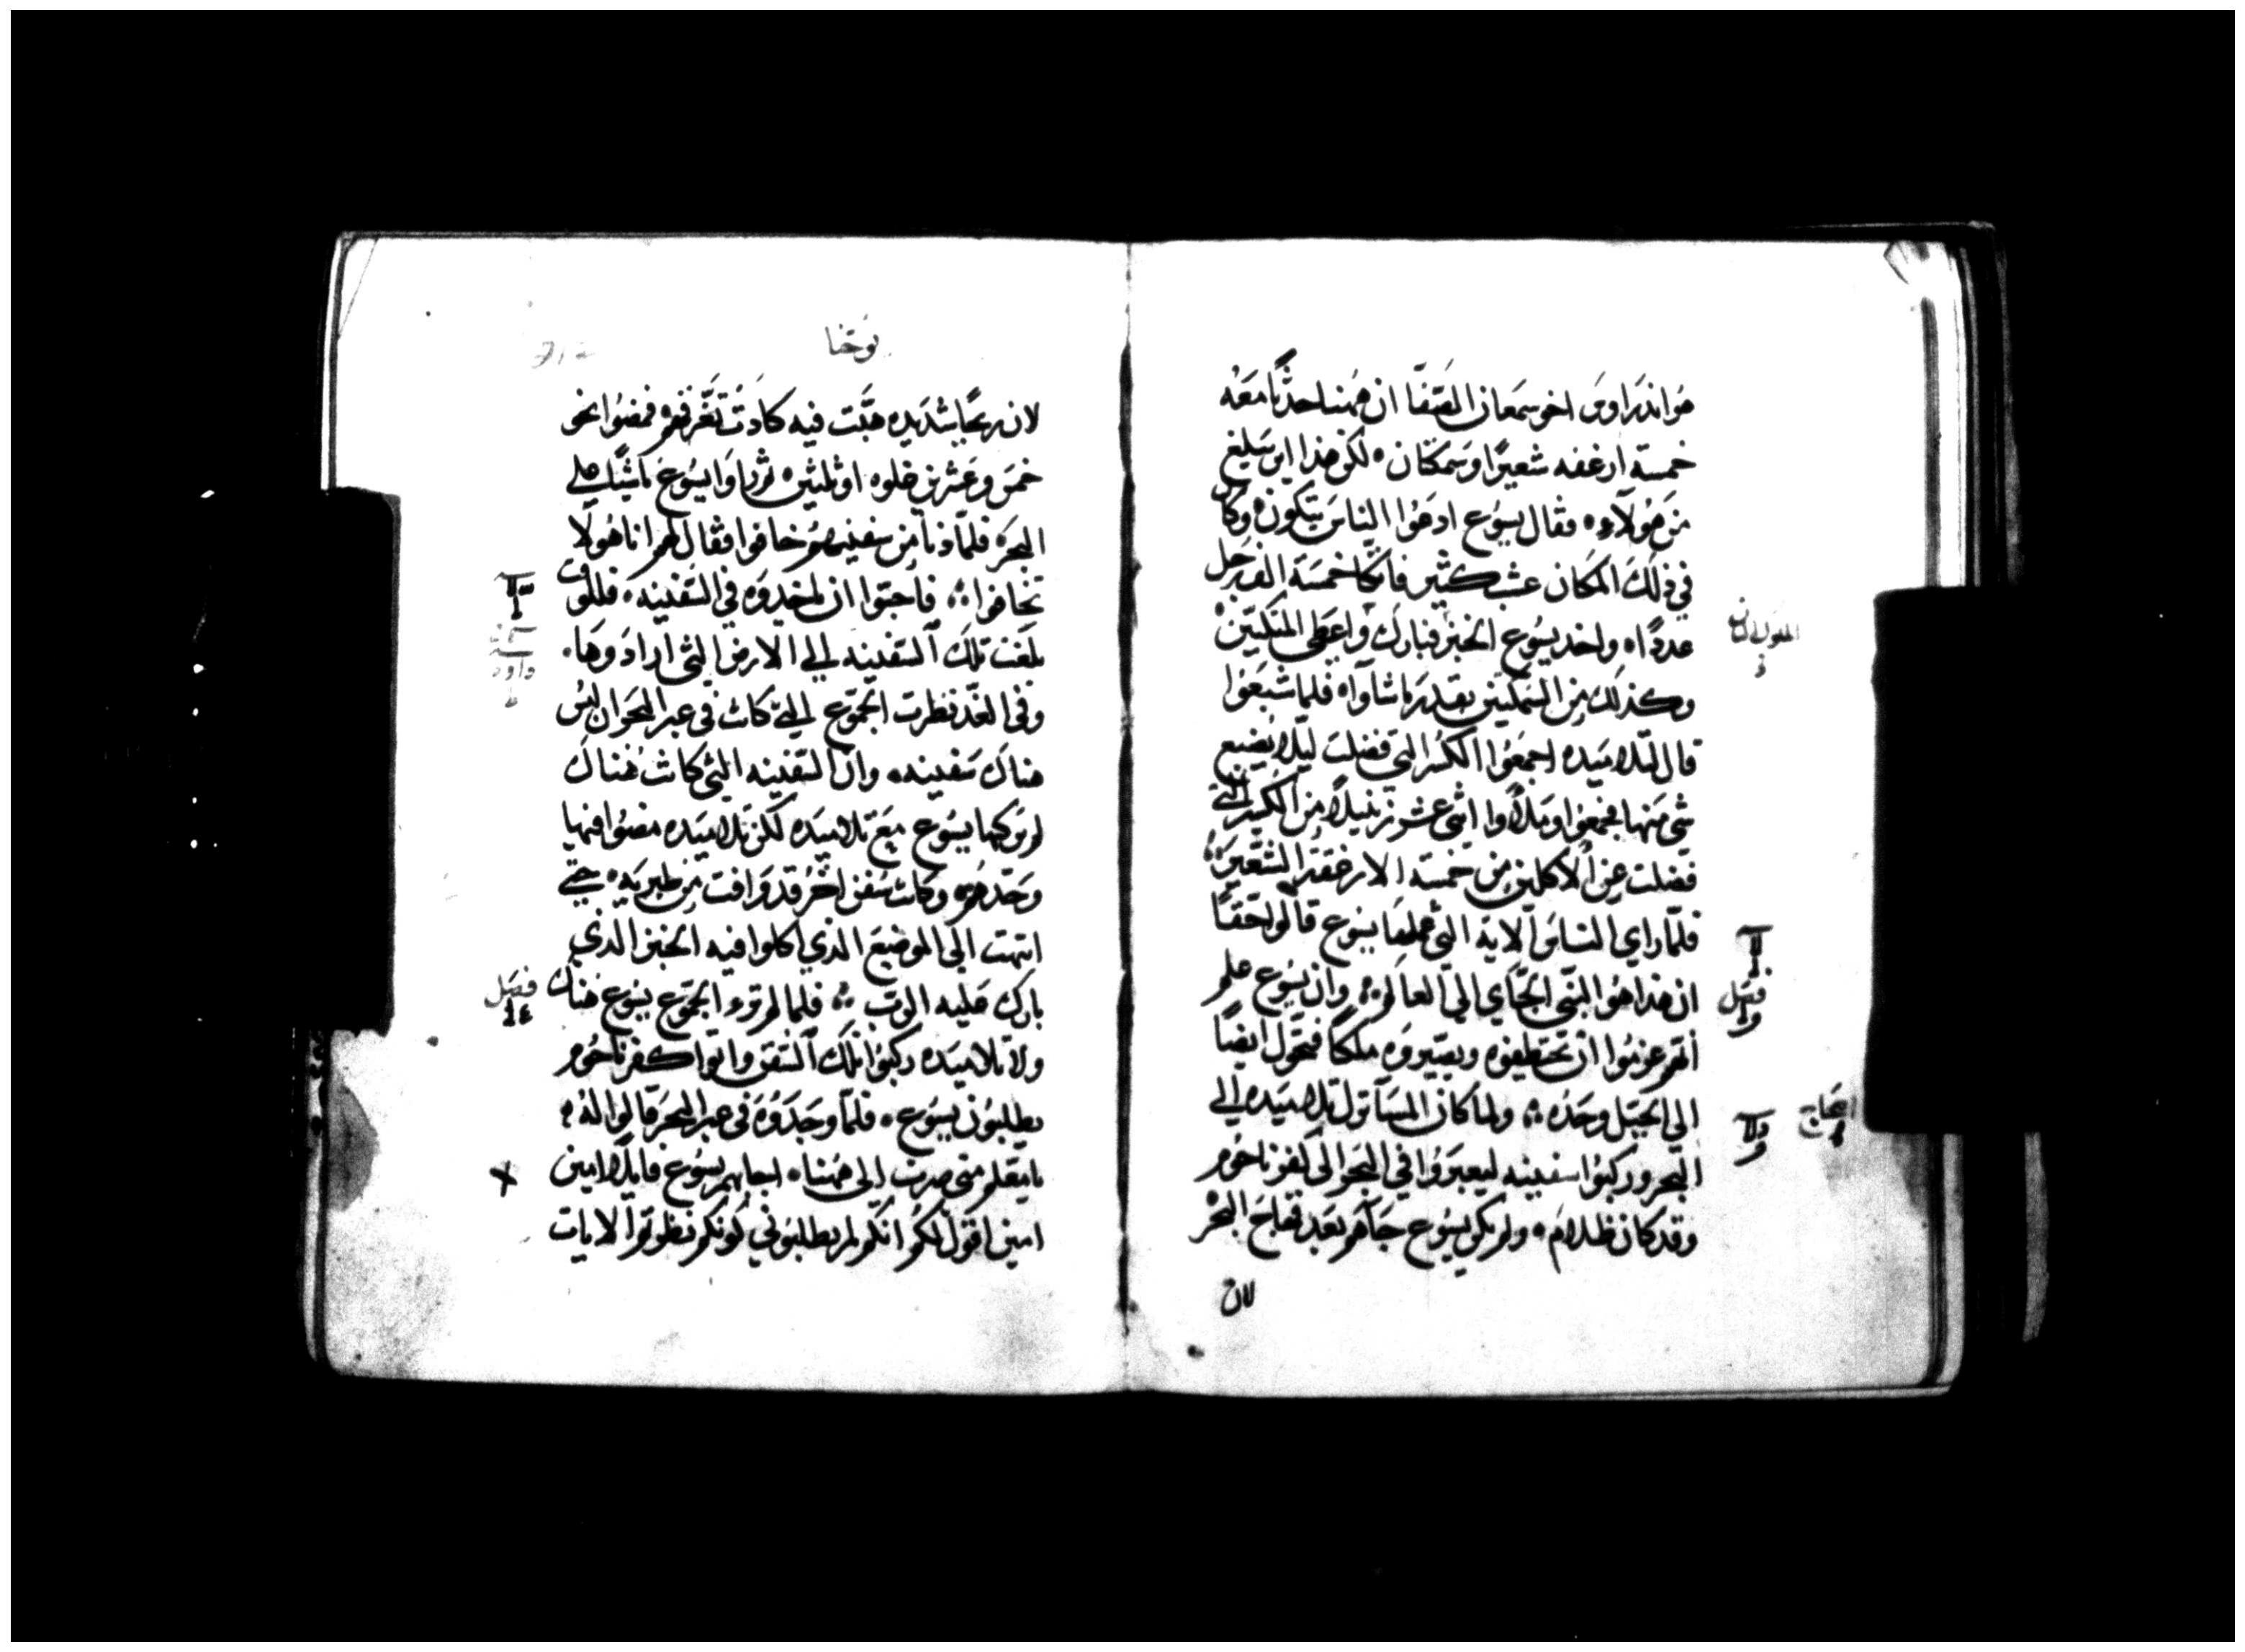 هو اندراوس اخو سمعان الصفا ان ههنا حدثا معه
خمسة ارغفه شعيرا وسمكتان لكن هذا اين يبلغ
من هولاء فقال يسوع ادعوا الناس يتكون وكان
في ذلك المكان عشب كثير فاتكا خمسة الف رجل
عددا واخد يسوع الخبز فبارك واعطي المتكيين
وكذلك من السمكتين بقدر ما شآوا فلما شبعوا
قال لتلاميده اجمعوا الكسر التي فضلت ليلا يضيع
شي منها فجمعوا وملاوا اثني عشر زنبيلا من الكسر التي
فضلت عن الاكلين من خمسة الارغفة الشعير
فلما راي الناس الاية التي عملها يسوع قالوا حقا
ان هذا هو النبي الجاي الي العالم وان يسوع علم
انهم عزموا ان تختطفوه ويصيروه ملكا فتحول ايضا
الي الجبل وحده ولما كان المسآ نزل تلاميده الي
البحر وركبوا سفينه ليعبروا في البحر الي كفرناحوم
وقد كان ظلام ولم يكن يسوع جآهم بعد فهاج البحر
لان
فصل
يوحنا
لان ريحا شديده هبت فيه كادت تغرقهم فمضوا نحو
خمس وعشرين غلوه او ثلثين ثم راوا يسوع ماشيا علي
البحر فلما دنا من سفينهم خافوا فقال لهم انا هو لا
تخافوا فاحبوا ان ياخدوه في السفينه فللوقت
بلغت تلك السفينه الي الارض التي ارادوها
وفي الغد نظرت الجموع التي كانت في عبر البحر ان ليس
هناك سفينه وان السفينه التي كانت هناك
لم يركبها يسوع مع تلاميده لكن تلاميده مضوا فيها
وحدهم وكانت سفن اخر قد وافت من طبريه حتي
انتهت الي الموضع الذي اكلوا فيه الخبز الذي
بارك عليه الرب فلما لم تري الجموع يسوع هناك
ولا تلاميده ركبوا تلك السفن واتوا كفرناحوم
يطلبون يسوع فلما وجدوه في عبر البحر قالوا له
يا معلم متي صرت الي ههنا اجابهم يسوع قايلا امين
امين اقول لكم انكم لم تطلبوني كونكم نظرتم الايات
فصل
١٤